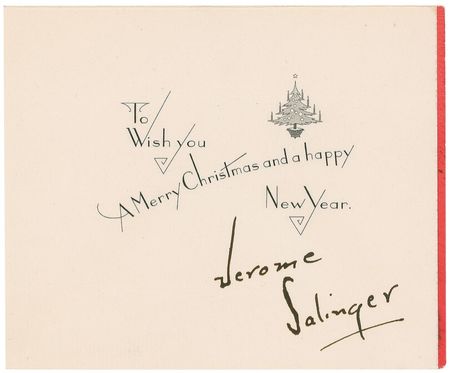 To
Wish you
A Merry Christmas and a happy
New Year.
Jerome
Salinger